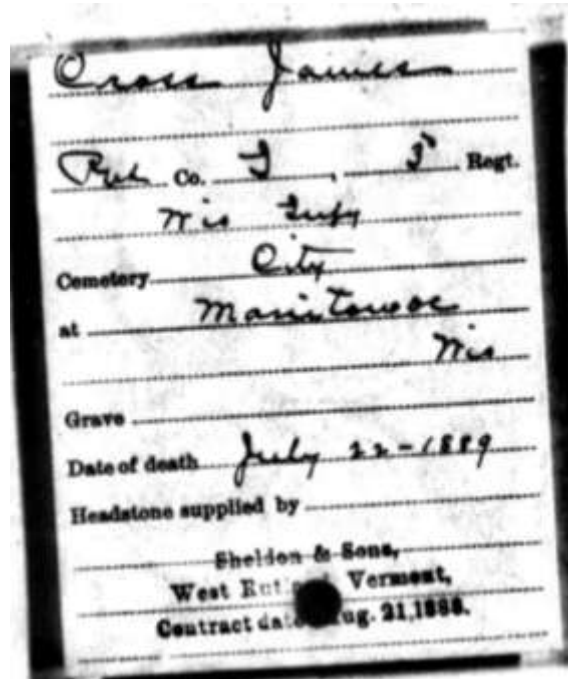 Cross James
Pvt Co. I, 5 Regt.
Wis Infy
Cemetery City
at Manitowoc
Wis
Grave
Date of death July 22-1889
Headstone supplied by
Sheldon & Sons,
West Vermont,
Contract Aug. 21, 1888.